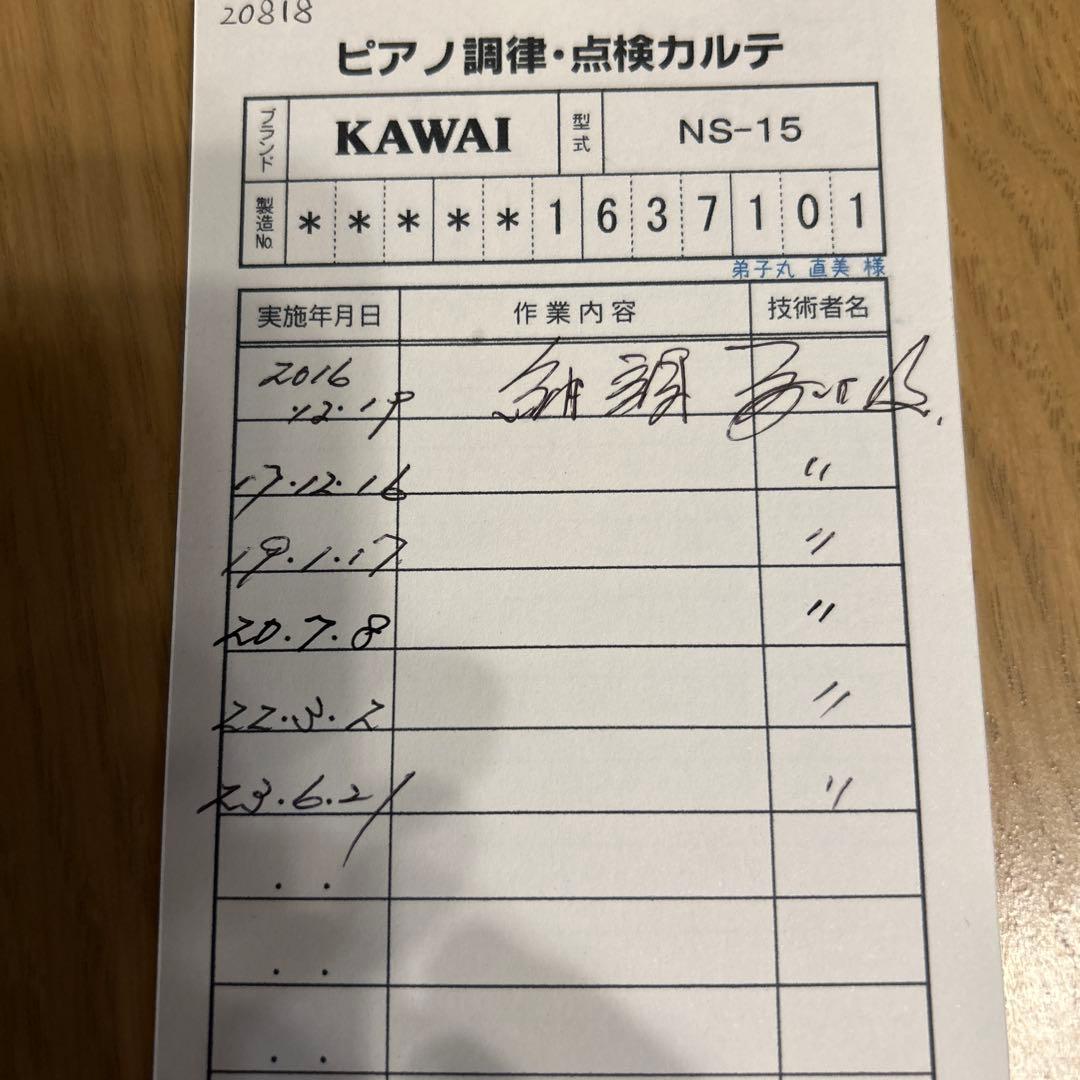 20818
ピアノ調律・点検カルテ
ブランド KAWAI 型式 NS-15
製造No. *****1637101
弟子丸 直美 様
実施年月日 作業内容 技術者名
2016 納調
12.19
17.12.16 〃
19.1.17 〃
20.7.8 〃
22.3.2 〃
23.6.21 〃
. .
. .
. .